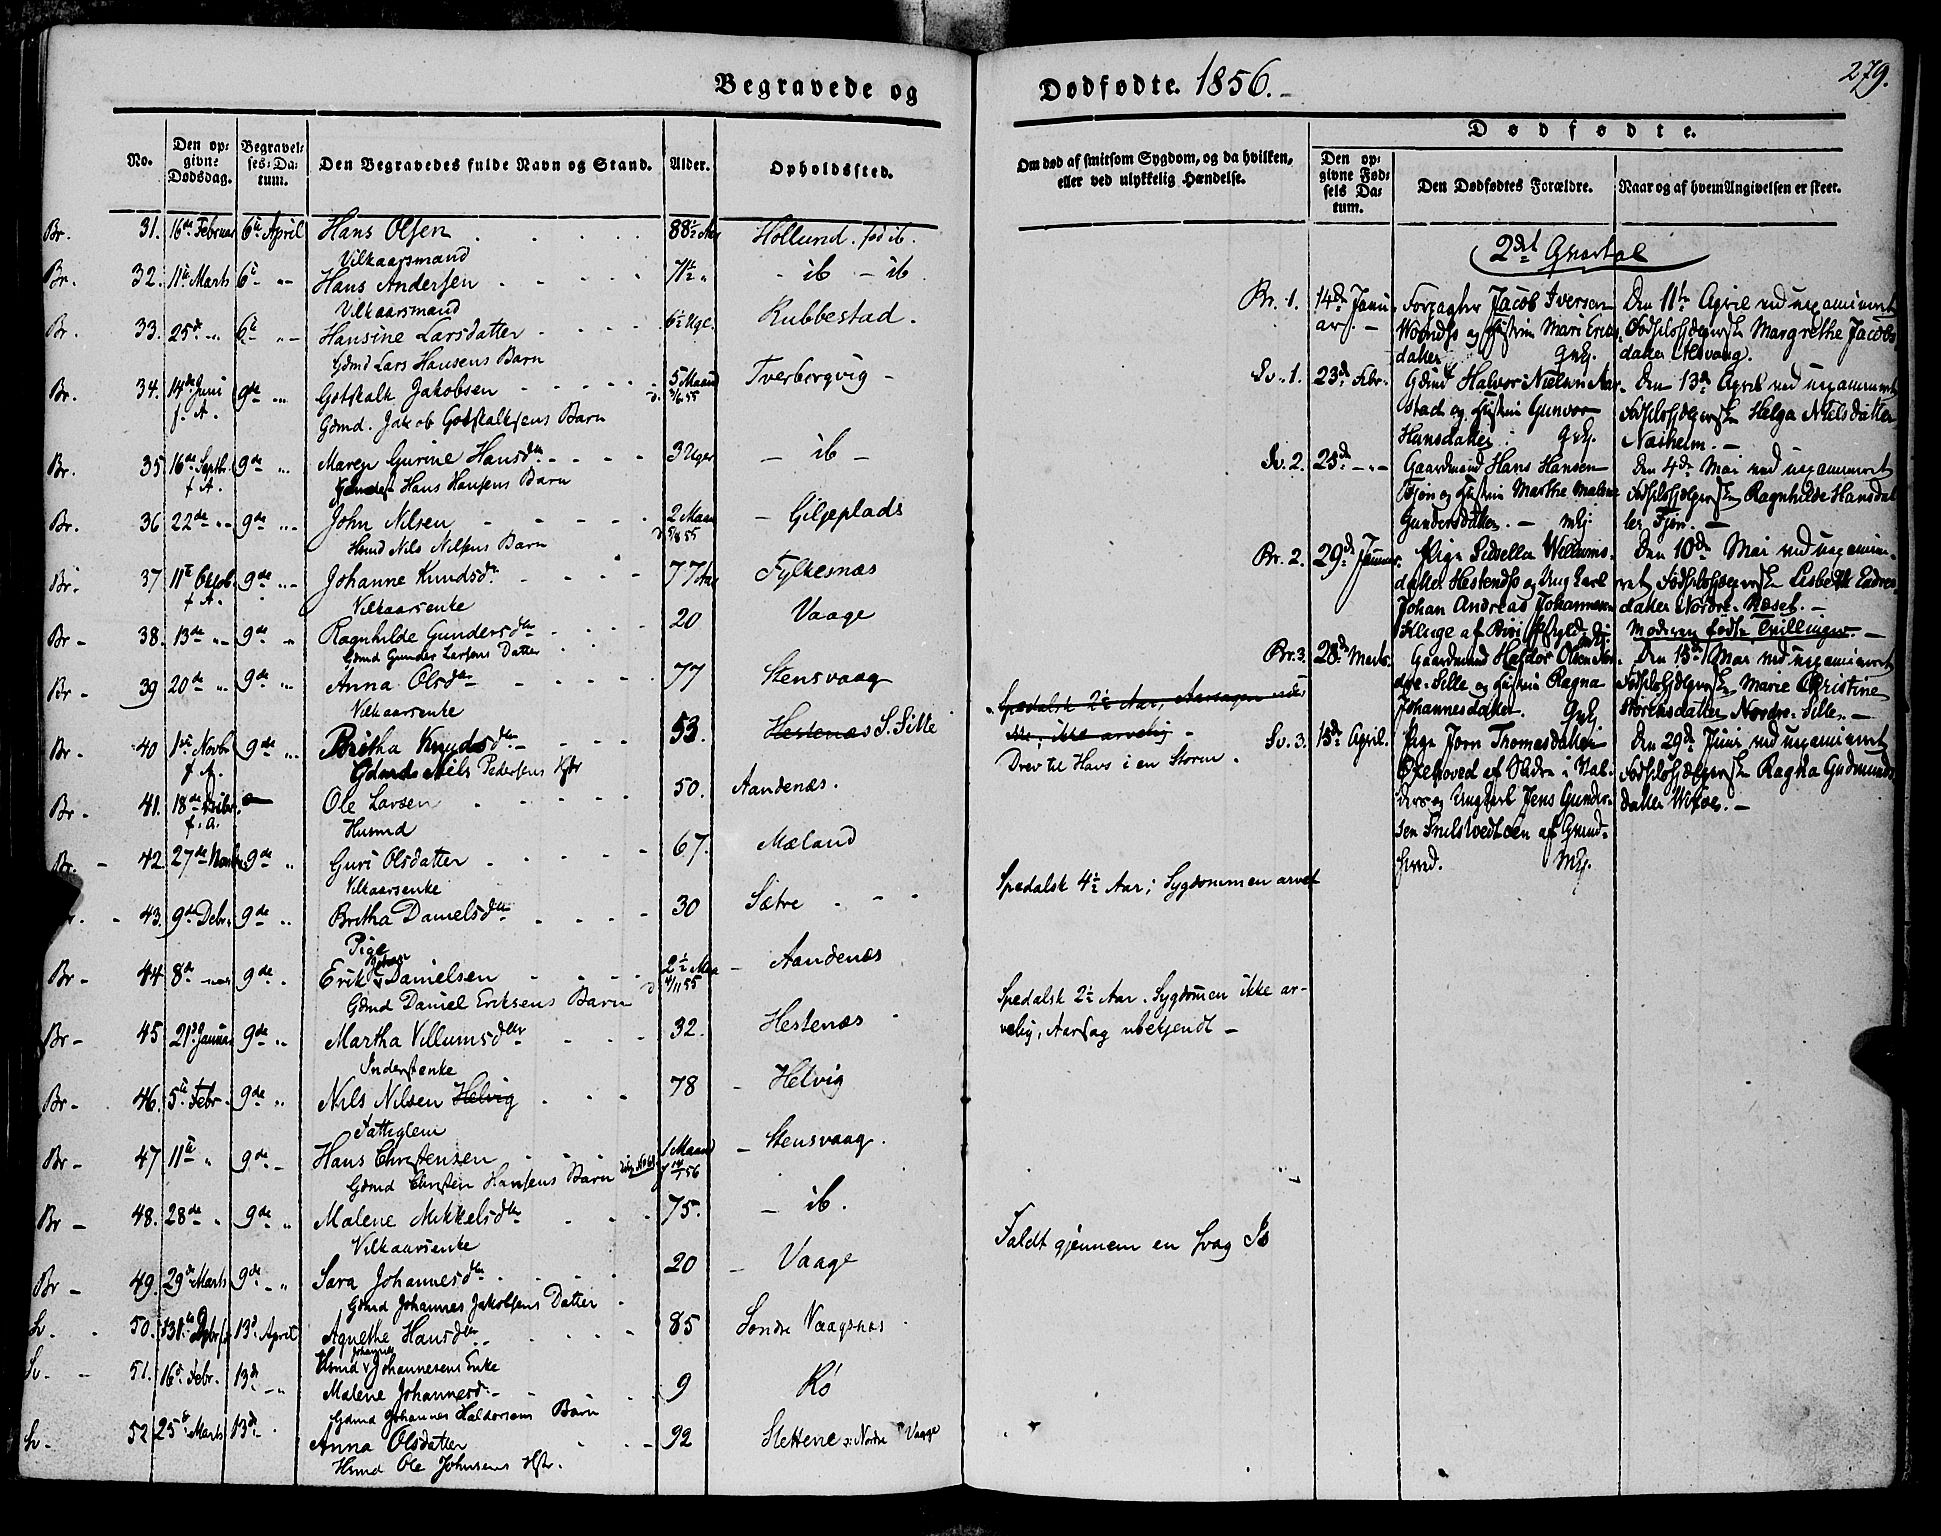 Begravede og
Dødfødte. 1856.
279.
No.
Den opgivne Dødsdag.
Begravelses-Datum.
Den Begravedes fulde Navn og Stand.
Alder.
Opholdssted.
Om død af smitsom Sygdom, og da hvilken,
eller ved ulykkelig Hændelse.
Dødfødte.
Den opgivne Fødsels Datum.
Den Dødfødtes Forældre.
Naar og af hvem Angivelsen er skeet.
Br. 31. 16de Februar 6te April Hans Olsen 88½ Aar Hollund. fød ib.
Vilkaarsmand
Br. 32. 11te Marts 6te Hans Andersen 71½ ib - ib
Vilkaarsmand
Br. 33. 25de 6te Hansine Larsdatter 6½ Uge. Rubbestad.
Gdmd Lars Hansens Barn
Br. 34. 14de Juni f. A. 9de Gotskalk Jakobsen 5 Maand Tverborgvig
Gdmd. Jakob Gotskalksens Barn
Br. 35 16de Septbr. f A. 9de Maren Gurine Hansdtr 3 Uger ib
Hans Hansens Barn
Br. 36 22de 9de John Nilsen 2 Maan Giljeplads
Hsmd Nils Nilsens Barn
Br. 37 11te Oktob. f A. 9de Johanne Knudsdr 77 Aar Fylkesnæs
Vilkaarsenke
Br 38. 13de 9de Ragnhilde Gundersdtr 20 Vaage
Gdmd Gunder Larsens Datter
Br 39 20de 9de Anna Olsdtr 77 Stensvaag
Vilkaarsenke
Br 40 1ste Novbr f. A. 9de Britha Knudsdtr 53. Hestenæs S. Sille
Gdmd Nils Pedersens Kjær
Br 41. 18de f. A. Ole Larsen 50. Aandenæs.
Husmd
Br. 42. 27de 9de Guri Olsdatter 67. Mæland
Vilkaarsenke
43. 9de Debr. 9de Britha Danielsdtr 30 Sætre
Pige
Br 44 8de 9de Erik Danielsen 2½ Maa 4/11 55 Aandenæs
Gdmd Daniel Eriksens Barn
Br 45 21de Januar 9de Martha Villumsdtr 32. Hestenæs
Inderstenke
Br 46. 5te Febr. 9de Nils Nilsen Helvig 78 Helvig
Fattiglem
Br 47 11te 9de Hans Christensen 1 Maand Stensvaag.
Gdmd Christen Hansens Barn
Br 48. 28de 9de Malene Mikkelsdtr 75. ib.
Vilkaarsenke
Br 49. 29de Marts 9de Sara Johannesdtr 20 Vaage
Gdmd Johannes Jakobsens Datter
Sv. 50. 13de April Agnethe Hansdtr 85 Søndre Vaagsnæs
Husmd Johannes Johannesens Enke
Sv. 51. 16de Febr. 13de Malene Johannesdtr 9 Rø
Gdmd Johannes Haldorsens Barn
Sv. 52 25de Marts 13de Anna Olsdatter 92 Slettene Nordre Vaage
Hsmd Ole Johnsens Hstr.
Spedalsk 2½ Aar, Aarsagen
ikke arvelig
Drev til Havs i en Storm.
Spedalsk 4½ Aar; Sygdommen arvet
Spedalsk 2½ Aar. Sygdomen ikke ar-
velig, Aarsag ubekjendt
Faldt gjennem en svag Is
2det Qvartal
Br. 1. 14de Janu- ar.
Forpagter Jacob Iversen
og Hustru Mari Eriks-
datter. Gvkj.
Den 11te April ved uexamineret
Fødselshjelperske Margrethe Jacobs-
datter
Sv. 1. 23de Febr.
Gdmd Halvor Nielsen Aar-
stad og Hustru Gunvor
Hansdatter. Gvkj.
Den 13de April ved uexamineret
Fødselshjelperske Helga Nielsdatter
Næshelm.
Sv. 2. 25de
Gaardmand Hans Hansen
Fjøn og Hustru Marthe Malene
Gundersdatter. Mkj.
Den 4de Mai ved uexamineret
Fødselshjelperske Ragnhilde Hansdat-
ter Fjøn.
Br. 2. 29de Januar.
Pige Sidsellea Willums-
datter og Ungkarl
Johan Andreas Johannessen
Kluge af
Den 10de Mai ved uexamine-
ret Fødselshjelperske Lisbeth Endres-
datter Nordre-Næset.
Moderen fødte Trillinger.
Br. 3. 28de Marts.
Gaardmand Haldor Olsen Nor-
dre-Sille og Hustru Ragna
Johannesdatter. Gvkj.
Den 15de Mai ved uexamineret
Fødselshjelperske Marie Christine
datter Nordre-Sille.
Sv. 3. 15de April.
Pige Jorn Thomasdatter
Oxehoved af Slidre i Val-
ders og Ungkarl Jens Gunder-
sen af
Mkj.
Den 29de Juni ved uexamineret
Fødselshjelperske Ragna Gudmunds-
datter